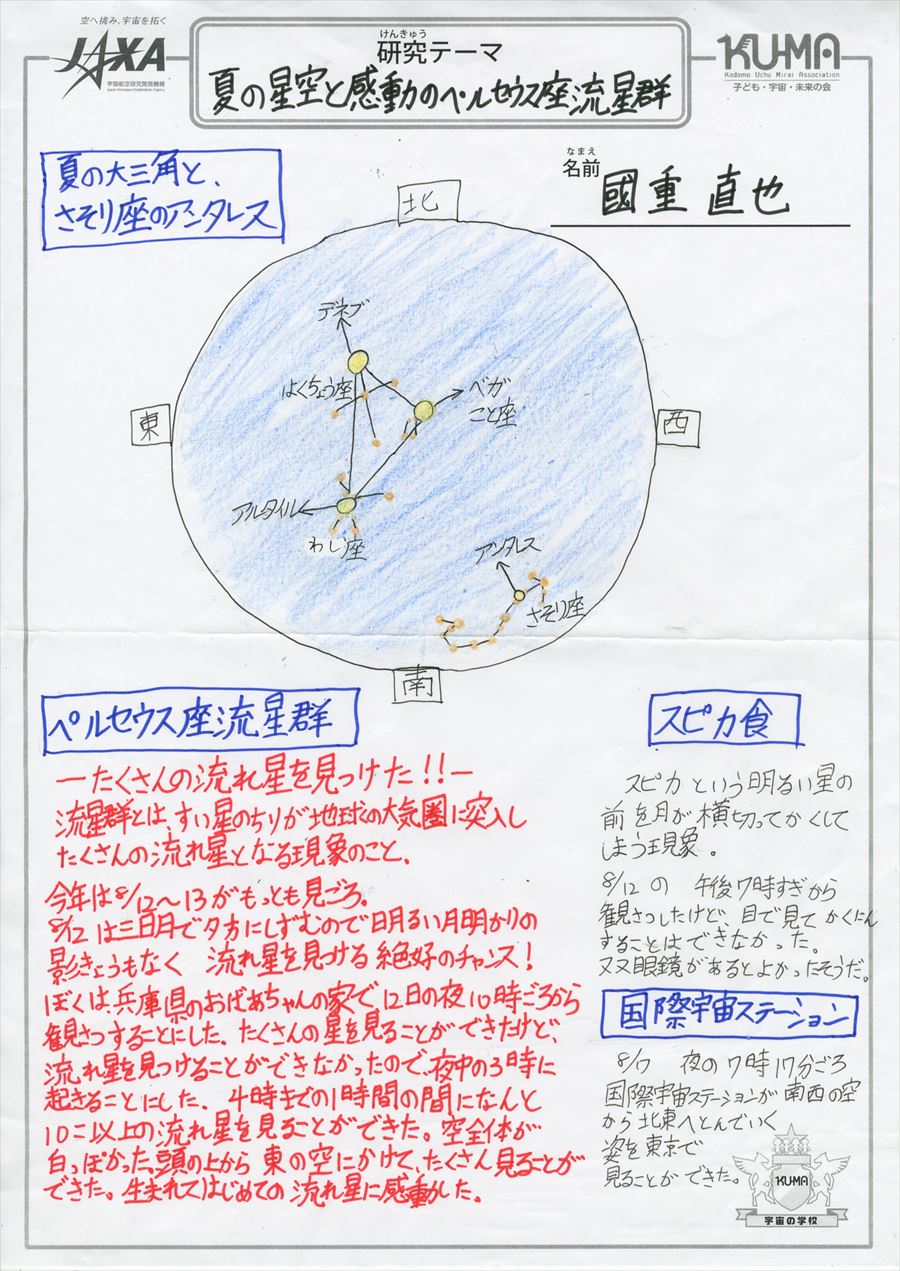 空へ挑み、宇宙を拓く
JAXA
宇宙航空研究開発機構
Japan Aerospace Exploration Agency
けんきゅう
研究テーマ
夏の星空と感動のペルセウス座流星群
KU-MA
Kodomo Uchu Mirai Association
子ども・宇宙・未来の会
なまえ
名前
國重 直也
夏の大三角と、
さそり座のアンタレス
北
デネブ
はくちょう座
ベガ
こと座
東
西
アルタイル
わし座
アンタレス
さそり座
南
ペルセウス座流星群
ーたくさんの流れ星を見つけた!!ー
流星群とは、すい星のちりが地球の大気圏に突入し
たくさんの流れ星となる現象のこと、
今年は8/12〜13がもっとも見ごろ。
8/12は三日月で夕方にしずむので明るい月明かりの
影きょうもなく 流れ星を見つける絶好のチャンス!
ぼくは、兵庫県のおばあちゃんの家で12日の夜10時ごろから
観さつすることにした、たくさんの星を見ることができたけど、
流れ星を見つけることができなかったので、夜中の3時に
起きることにした、4時までの1時間の間になんと
10こ以上の流れ星を見ることができた。空全体が
白っぽかった、頭の上から東の空にかけて、たくさん見ることが
できた。生まれてはじめての流れ星に感動した。
スピカ食
スピカという明るい星の
前を月が横切ってかくして
しまう現象。
8/12の 午後7時すぎから
観さつしたけど、目で見てかくにん
することはできなかった。
双眼鏡があるとよかったそうだ。
国際宇宙ステーション
8/7 夜の7時17分ごろ
国際宇宙ステーションが南西の空
から北東へとんでいく
姿を東京で
見ることができた。
KU-MA
宇宙の学校